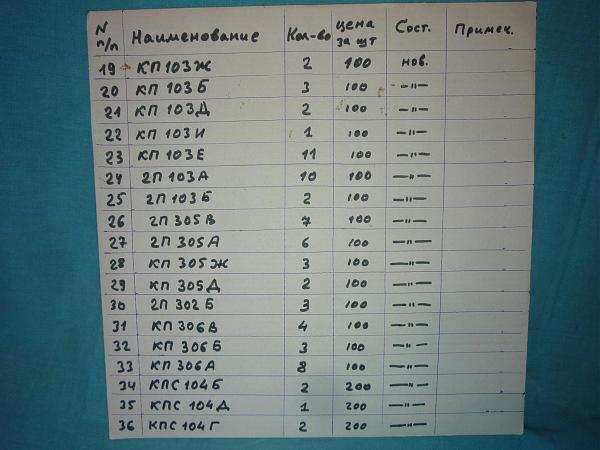 N п/п Наименование Кол-во цена за шт Сост. Примеч.
19 КП 103 Ж 2 100 нов.
20 КП 103 Б 3 100 —"—
21 КП 103 Д 2 100 —"—
22 КП 103 И 1 100 —"—
23 КП 103 Е 11 100 —"—
24 2П 103 А 10 100 —"—
25 2П 103 Б 2 100 —"—
26 2П 305 В 7 100 —"—
27 2П 305 А 6 100 —"—
28 КП 305 Ж 3 100 —"—
29 КП 305 Д 2 100 —"—
30 2П 302 Б 3 100 —"—
31 КП 306 В 4 100 —"—
32 КП 306 Б 3 100 —"—
33 КП 306 А 8 100 —"—
34 КПС 104 Б 2 200 —"—
35 КПС 104 Д 1 200 —"—
36 КПС 104 Г 2 200 —"—